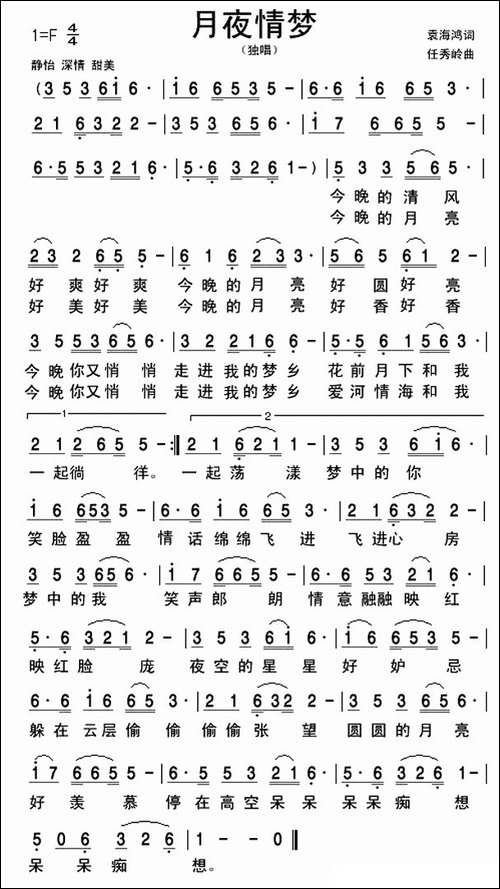 月夜情梦
(独唱)
1=F 4/4
袁海鸿词
任秀岭曲
静怡 深情 甜美
(3 5 3 6i 6· | i6 6535 - | 6·6 i6 65 3· |
21 6322 - | 353 656· | i7 665 5 - |
6·5 53216· | 5·6 326 1-) | 5 3 3 56 5· |
今晚的清风
今晚的月亮
23 2 65 5 - | 6 1 6 233· | 565 61 2- |
好爽好爽 今晚的月亮 好圆好亮
好美好美 今晚的月亮 好香好香
3 5 53 656· | 32 2216 6· | 5·5 61 563· |
今晚你又悄悄 走进我的梦乡 花前月下和我
今晚你又悄悄 走进我的梦乡 爱河情海和我
1 2
2 1 265 5 - :‖ 21 6211 - | 353 6i6· |
一起徜徉。 一起荡漾 梦中的你
i6 6535 - | 6·6 i6 653· | 21 632 2- |
笑脸盈盈 情话绵绵飞进 飞进心房
353 656· | i7 6655 - | 6·6 53 21 6· |
梦中的我 笑声郎朗 情意融融映红
5·6 321 2 - | 353 6i · | i6 6535 - |
映红脸庞 夜空的星星 好妒忌
6·6 i6 65 3· | 21 632 2 - | 353 656· |
躲在云层偷偷 偷偷张望 圆圆的月亮
i7 665 5 - | 6·5 53 21 6· | 5·6 326 1 - |
好羡慕 停在高空呆呆 呆呆痴想
5 0 6 326 | 1 - - 0‖
呆呆痴想。